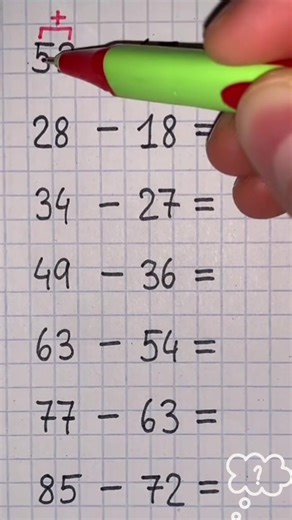 +
28 - 18 =
34 - 27 =
49 - 36 =
63 - 54 =
77 - 63 =
85 - 72 =
?